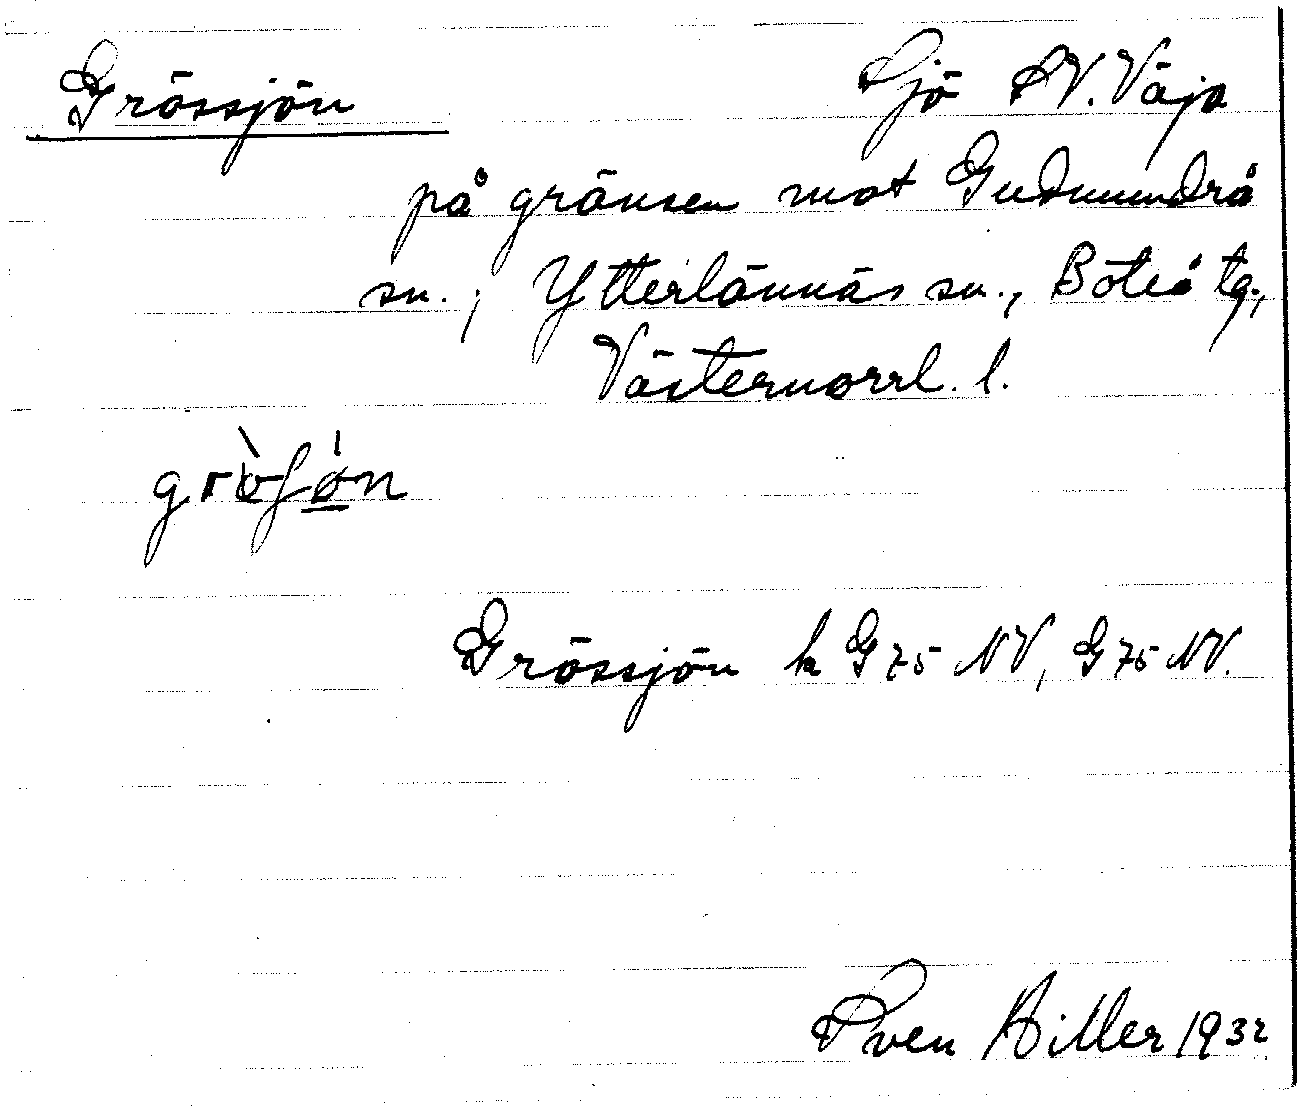 Grössjön Sjö SV. Väja
på gränsen mot Gudmundrå
sn., Ytterlännäs sn., Boteå tg.,
Västernorrl. l.
grö̀ʃǿn
Grössjön k G 75 NV, G 75 NV.
Sven Hiller 1932